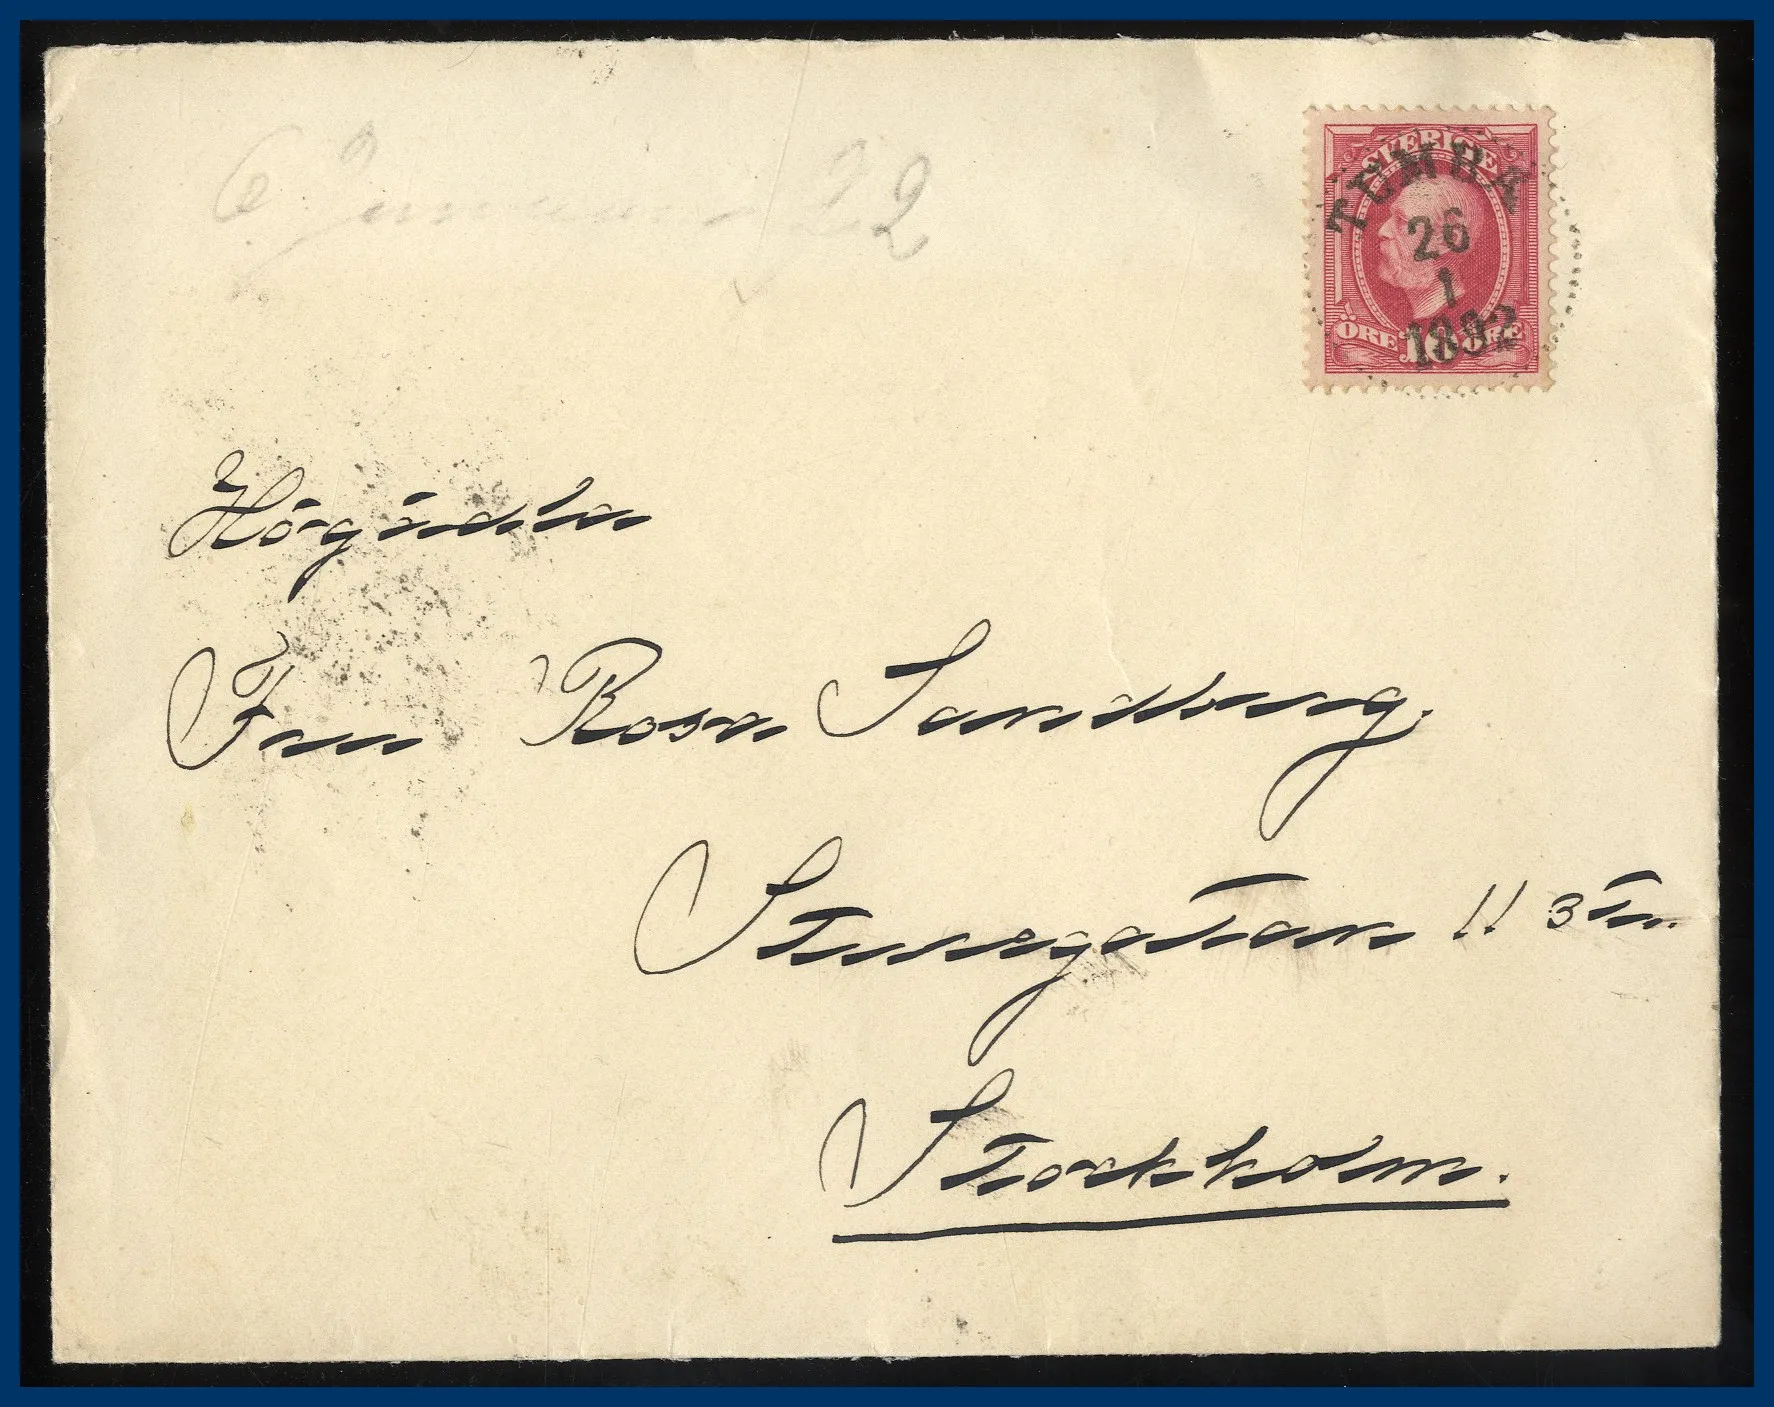 6 Januari 92
SVERIGE
TUMBA
26
1
1892
ÖRE 10 ÖRE
Högädla
Fru Rosa Sandberg.
Sturegatan 11 3 tr.
Stockholm.